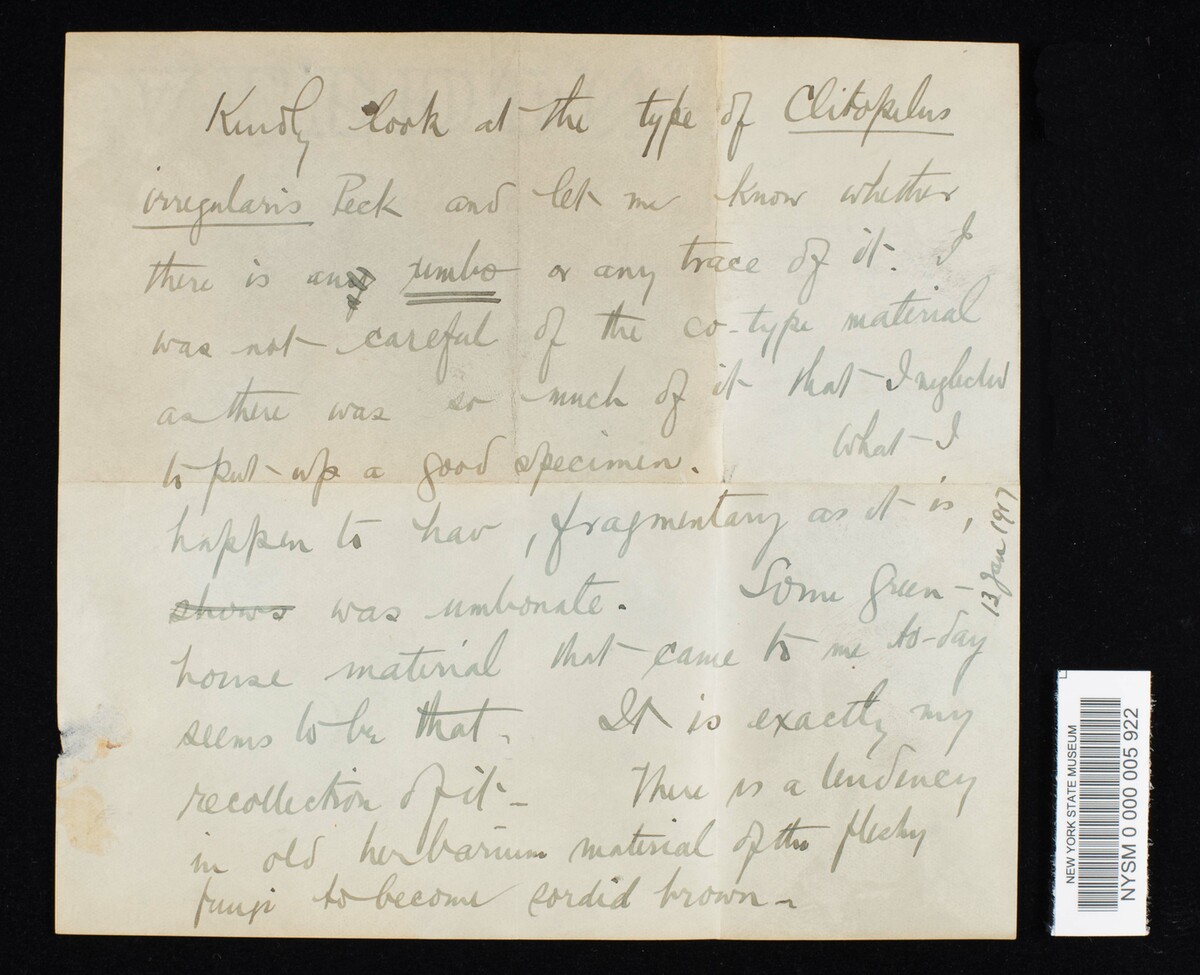 Kindly look at the type of Clitopilus
irregularis Peck and let me know whether
there is any umbo or any trace of it. I
was not careful of the co-type material
as there was so much of it that I neglected
to put up a good specimen. What I
happen to hav, fragmentary as it is,
shows was umbonate. Some green-
house material that came to me to-day
seems to be that. It is exactly my
recollection of it- There is a tendency
in old herbarium material of the fleshy
fungi to become sordid brown-
13 Jan 1917
NEW YORK STATE MUSEUM
NYSM 0 000 005 922